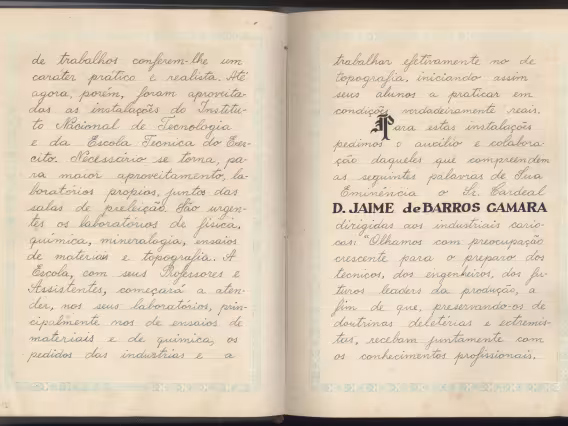 de trabalhos conferem-lhe um
carater pratico e realista. Até
agora, porém, foram aproveita-
das as instalações do Institu-
to Nacional de Tecnologia
e da Escola Tecnica do Exer-
cito. Necessário se torna, pa-
ra maior aproveitamento, la-
boratórios propios, juntos das
salas de preleição. São urgen-
tes os laboratórios de fisica,
quimica, mineralogia, ensaios
de materiais e topografia. A
Escola, com seus Professores e
Assistentes, começará a aten-
der, nos seus laboratórios, prin-
cipalmente nos de ensaios de
materiais e de quimica, os
pedidos das industrias e a
trabalhar efetivamente no de
topografia, iniciando assim
seus alunos a praticar em
condições verdadeiramente reais.
Para estas instalações
pedimos o auxilio e colabora-
ção daqueles que compreendem
as seguintes palavras de Sua
Eminência o Sr. Cardeal
D. JAIME de BARROS CAMARA
dirigidas aos industriais cario-
cas: "Olhamos com preocupação
crescente para o preparo dos
tecnicos, dos engenheiros, dos fu-
turos leaders da produção, a
fim de que, preservando-os de
doutrinas deletérias e extremis-
tas, recebam juntamente com
os conhecimentos profissionais,